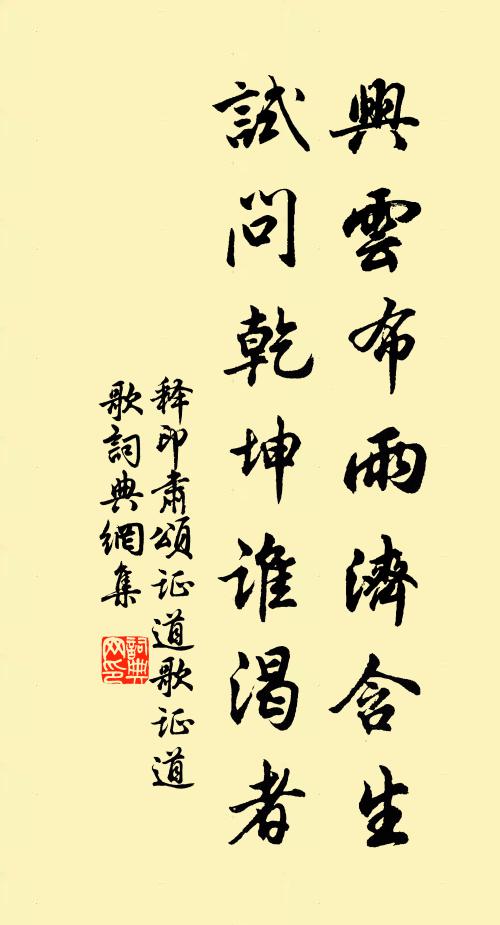 興雲布雨濟含生
試問乾坤誰渴者
释印肅頌证道歌证道
歌詞典網集
詞典網印